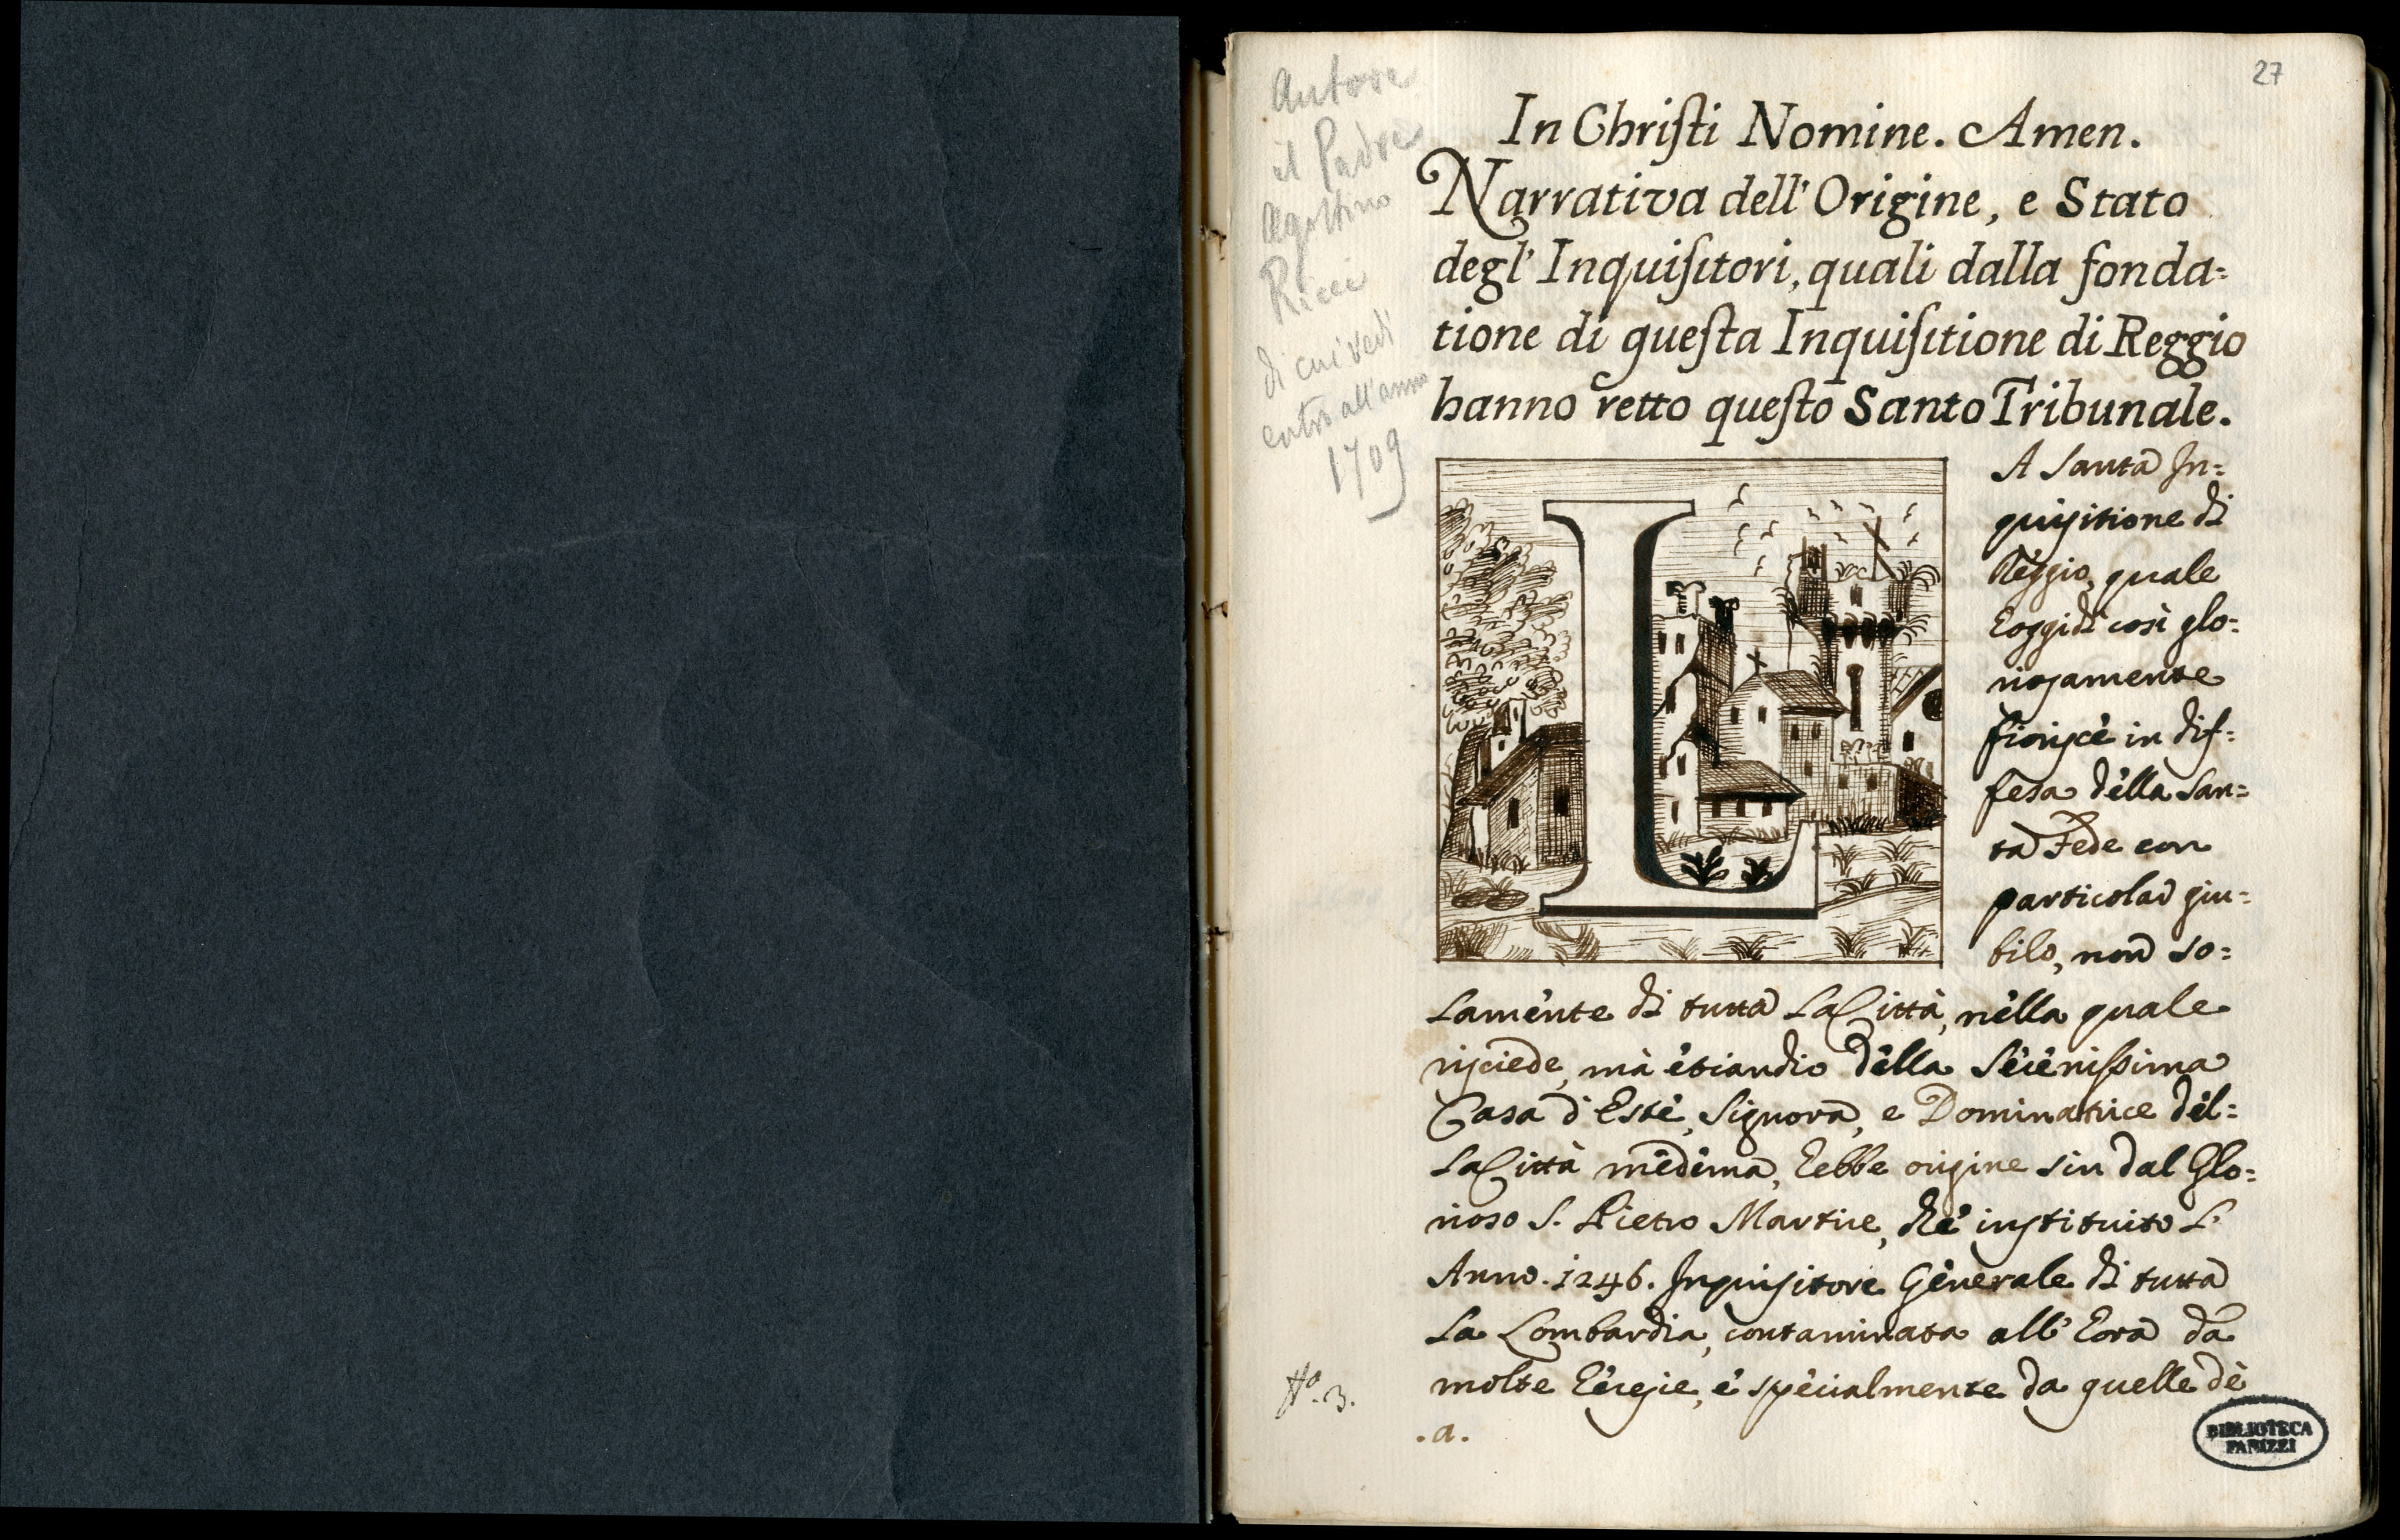 27
Autore
il Padre
Agostino
Ricci
di cui vedi
entro all'anno
1709
In Christi Nomine. Amen.
Narrativa dell'Origine, e Stato
degl'Inquisitori, quali dalla fonda=
tione di questa Inquisitione di Reggio
hanno retto questo Santo Tribunale.
LA Santa In=
quisitione di
Reggio, quale
hoggidì così glo=
riosamente
fiorisce in dif=
fesa della San=
ta Fede con
particolar giu=
bilo, non so=
lamente di tutta la Città, nella quale
risciede, mà etiandio della Serenissima
Casa d'Este, Signora, e Dominatrice del=
la Città medema, hebbe origine sin dal Glo=
rioso S. Pietro Martire, che instituito l'
Anno. 1246. Inquisitore Generale di tutta
la Lombardia, contaminata all'hora da
molte heresie, e specialmente da quelle de
.a.
BIBLIOTECA
PANIZZI